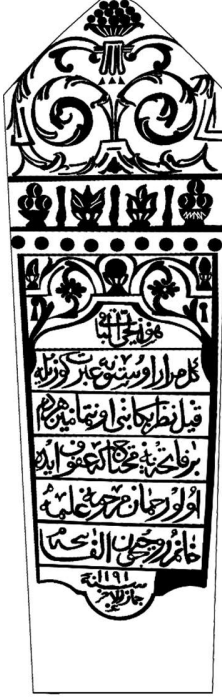 هو الحي الباقي
كل مزار اوستنه عبرت كوزيله
قيل نظر بكا بنى اونتما هردم
بر فاتحه يه محتاج عفو ايده
اولو رحمان مرحومه عليمه
خانم روحيچون الفاتحه
سنة ١١٩١